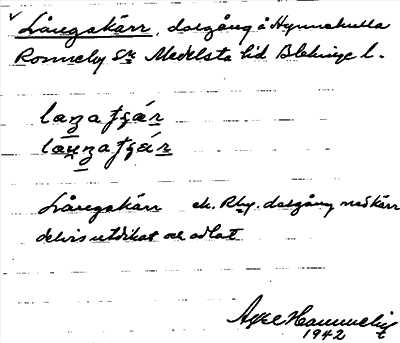 Långskärr, dalgång å Hynnekulla
Ronneby Sn Medelsta hd Blekinge l.
laŋaʃɡár
lauŋaʃɡár
Långskärr ek. Rby. dalgång med kärr
delvis utdikat och odlat
Axel
1942